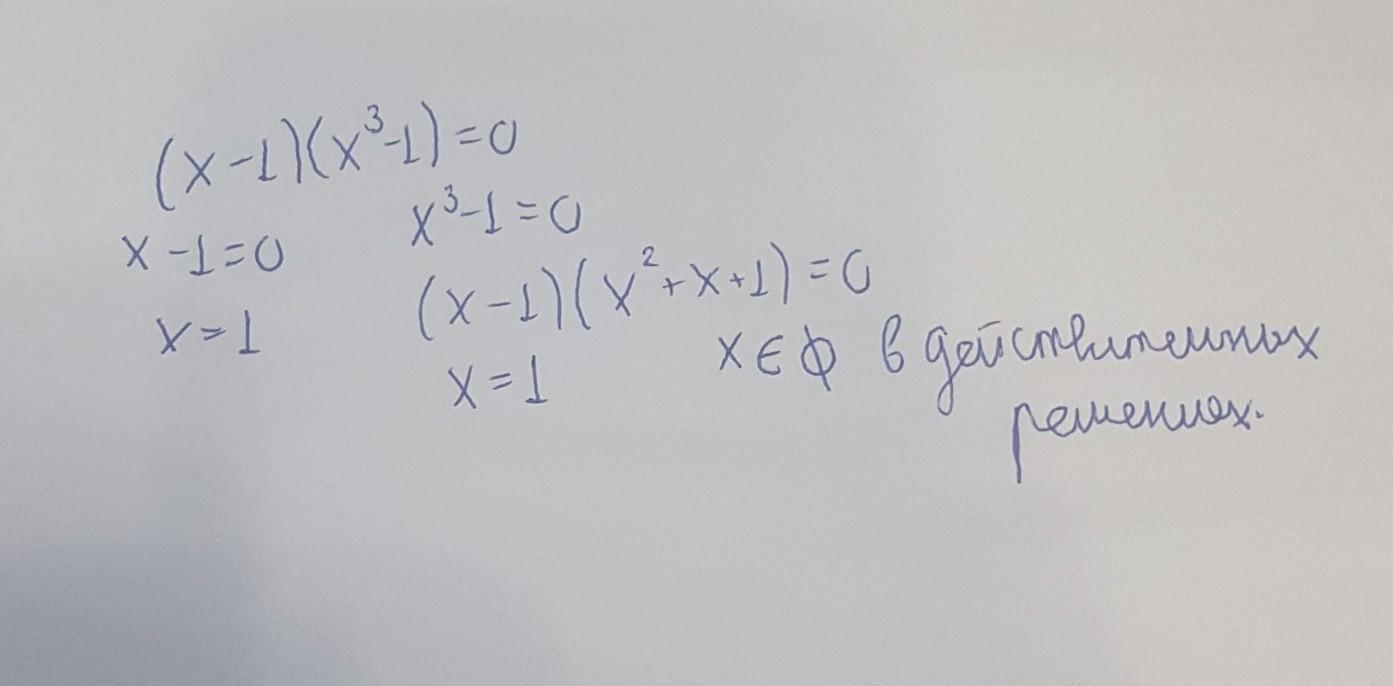 (x-1)(x³-1)=0
x-1=0 x³-1=0
(x-1)(x²+x+1)=0
x=1 x=1 x∈ϕ в действительных
решениях.